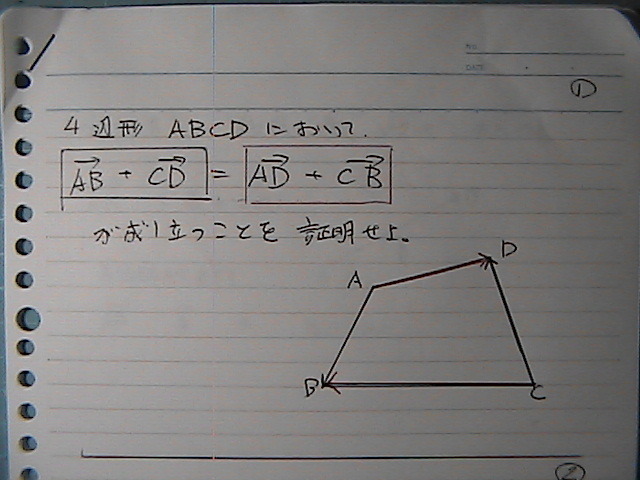 NO.
DATE
①
4辺形 ABCD において.
$\overrightarrow{AB} + \overrightarrow{CD} = \overrightarrow{AD} + \overrightarrow{CB}$
が成り立つことを 証明せよ。
D
A
B
C
②